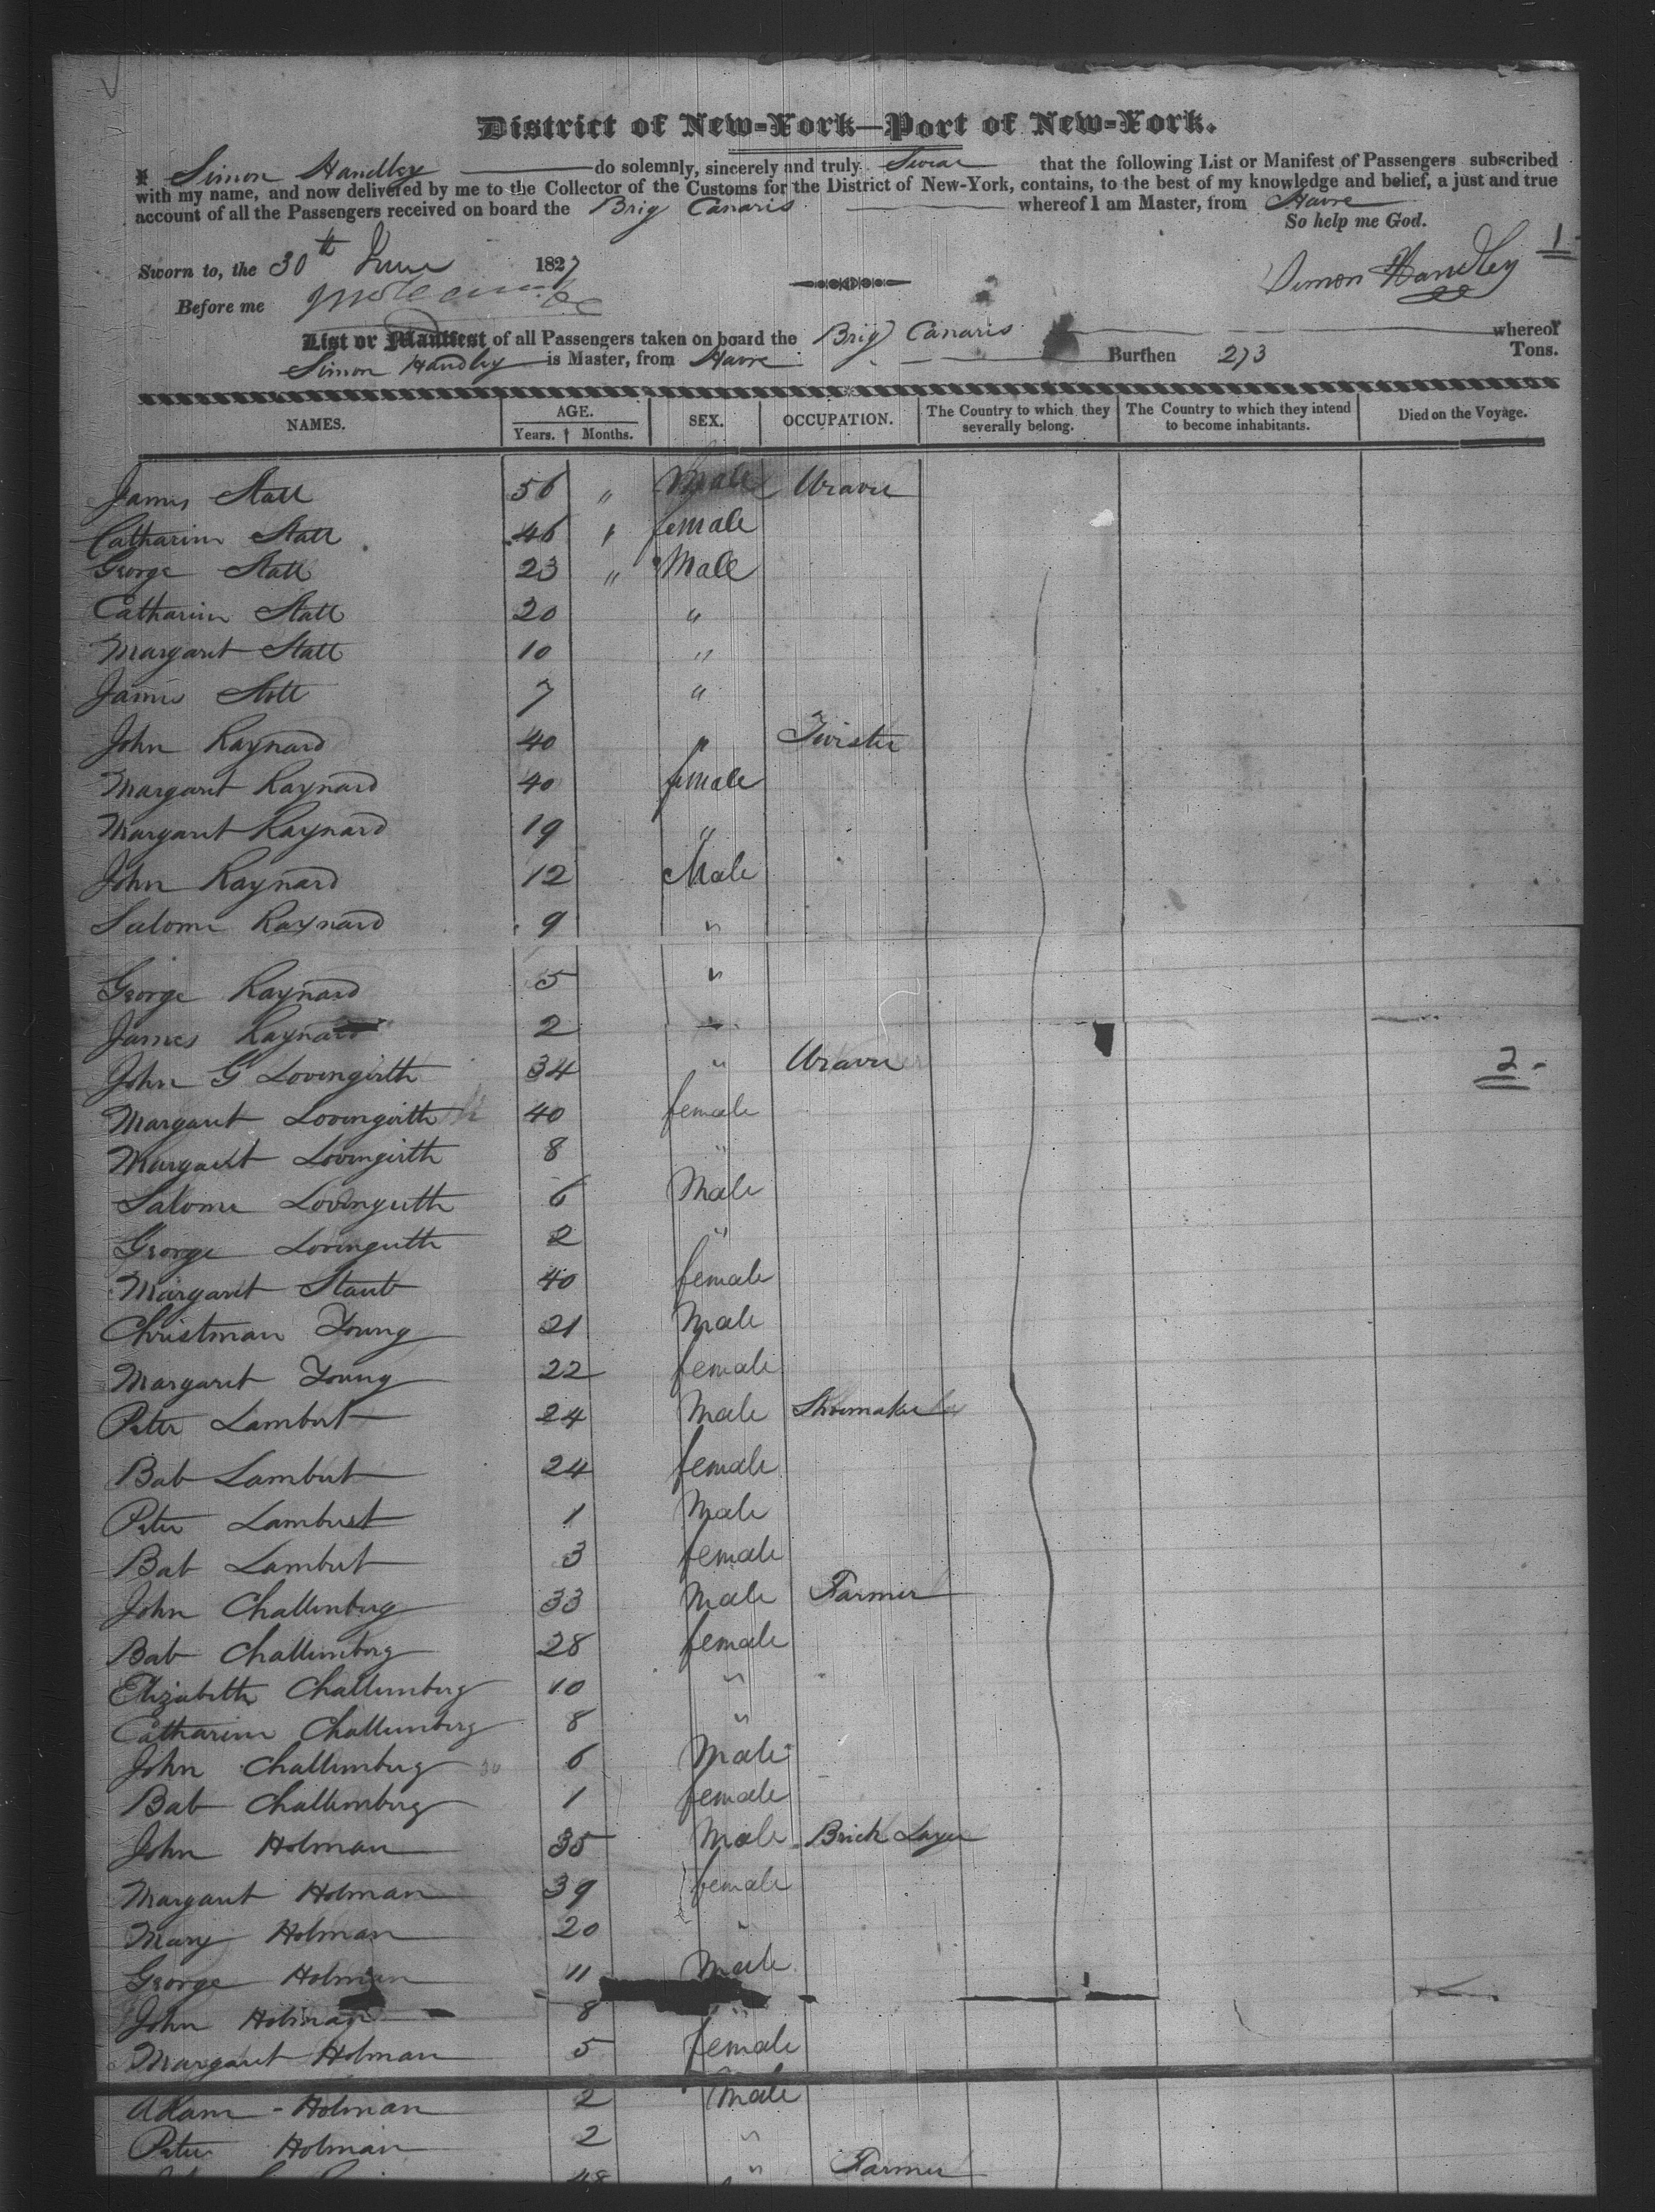 District of New-York—Port of New-York.
I Simon Handley do solemnly, sincerely and truly Swear that the following List or Manifest of Passengers subscribed
with my name, and now delivered by me to the Collector of the Customs for the District of New-York, contains, to the best of my knowledge and belief, a just and true
account of all the Passengers received on board the Brig Canaris whereof I am Master, from Havre
So help me God.
Sworn to, the 30th June 1827
Simon Handley
1
Before me
List or Manifest of all Passengers taken on board the Brig Canaris whereof
Simon Handley is Master, from Havre Burthen 273 Tons.
NAMES. AGE. Years. Months. SEX. OCCUPATION. The Country to which they severally belong. The Country to which they intend to become inhabitants. Died on the Voyage.
James Stall 56 " Male Weaver
Catharin Stall 46 " female
George Stall 23 " Male
Catharin Stall 20 "
Margaret Stall 10 "
James Stoll 7 "
John Raynard 40 " Twister
Margaret Raynard 40 female
Margaret Raynard 19 "
John Raynard 12 Male
Salome Raynard 9 "
George Raynard 5 "
James Raynard 2 "
John G Lovingirth 34 " Weaver
2
Margaret Lovingirth 40 female
Margaret Lovingirth 8 "
Salome Lovingirth 6 Male
George Lovingirth 2 "
Margaret Staub 40 female
Christman Young 21 Male
Margaret Young 22 female
Peter Lambert 24 Male Shoemaker
Bab Lambert 24 female
Peter Lambert 1 Male
Bab Lambert 3 female
John Challemberg 33 Male Farmer
Bab Challemberg 28 female
Elizabeth Challemberg 10 "
Catharine Challemberg 8 "
John Challemberg 6 Male
Bab Challemberg 1 female
John Holman 35 Male Brick Layer
Margaret Holman 39 female
Mary Holman 20 "
George Holman 11 Male
John Holman 8 "
Margaret Holman 5 female
Adam - Holman 2 Male
Peter Holman 2 "
48 " Farmer